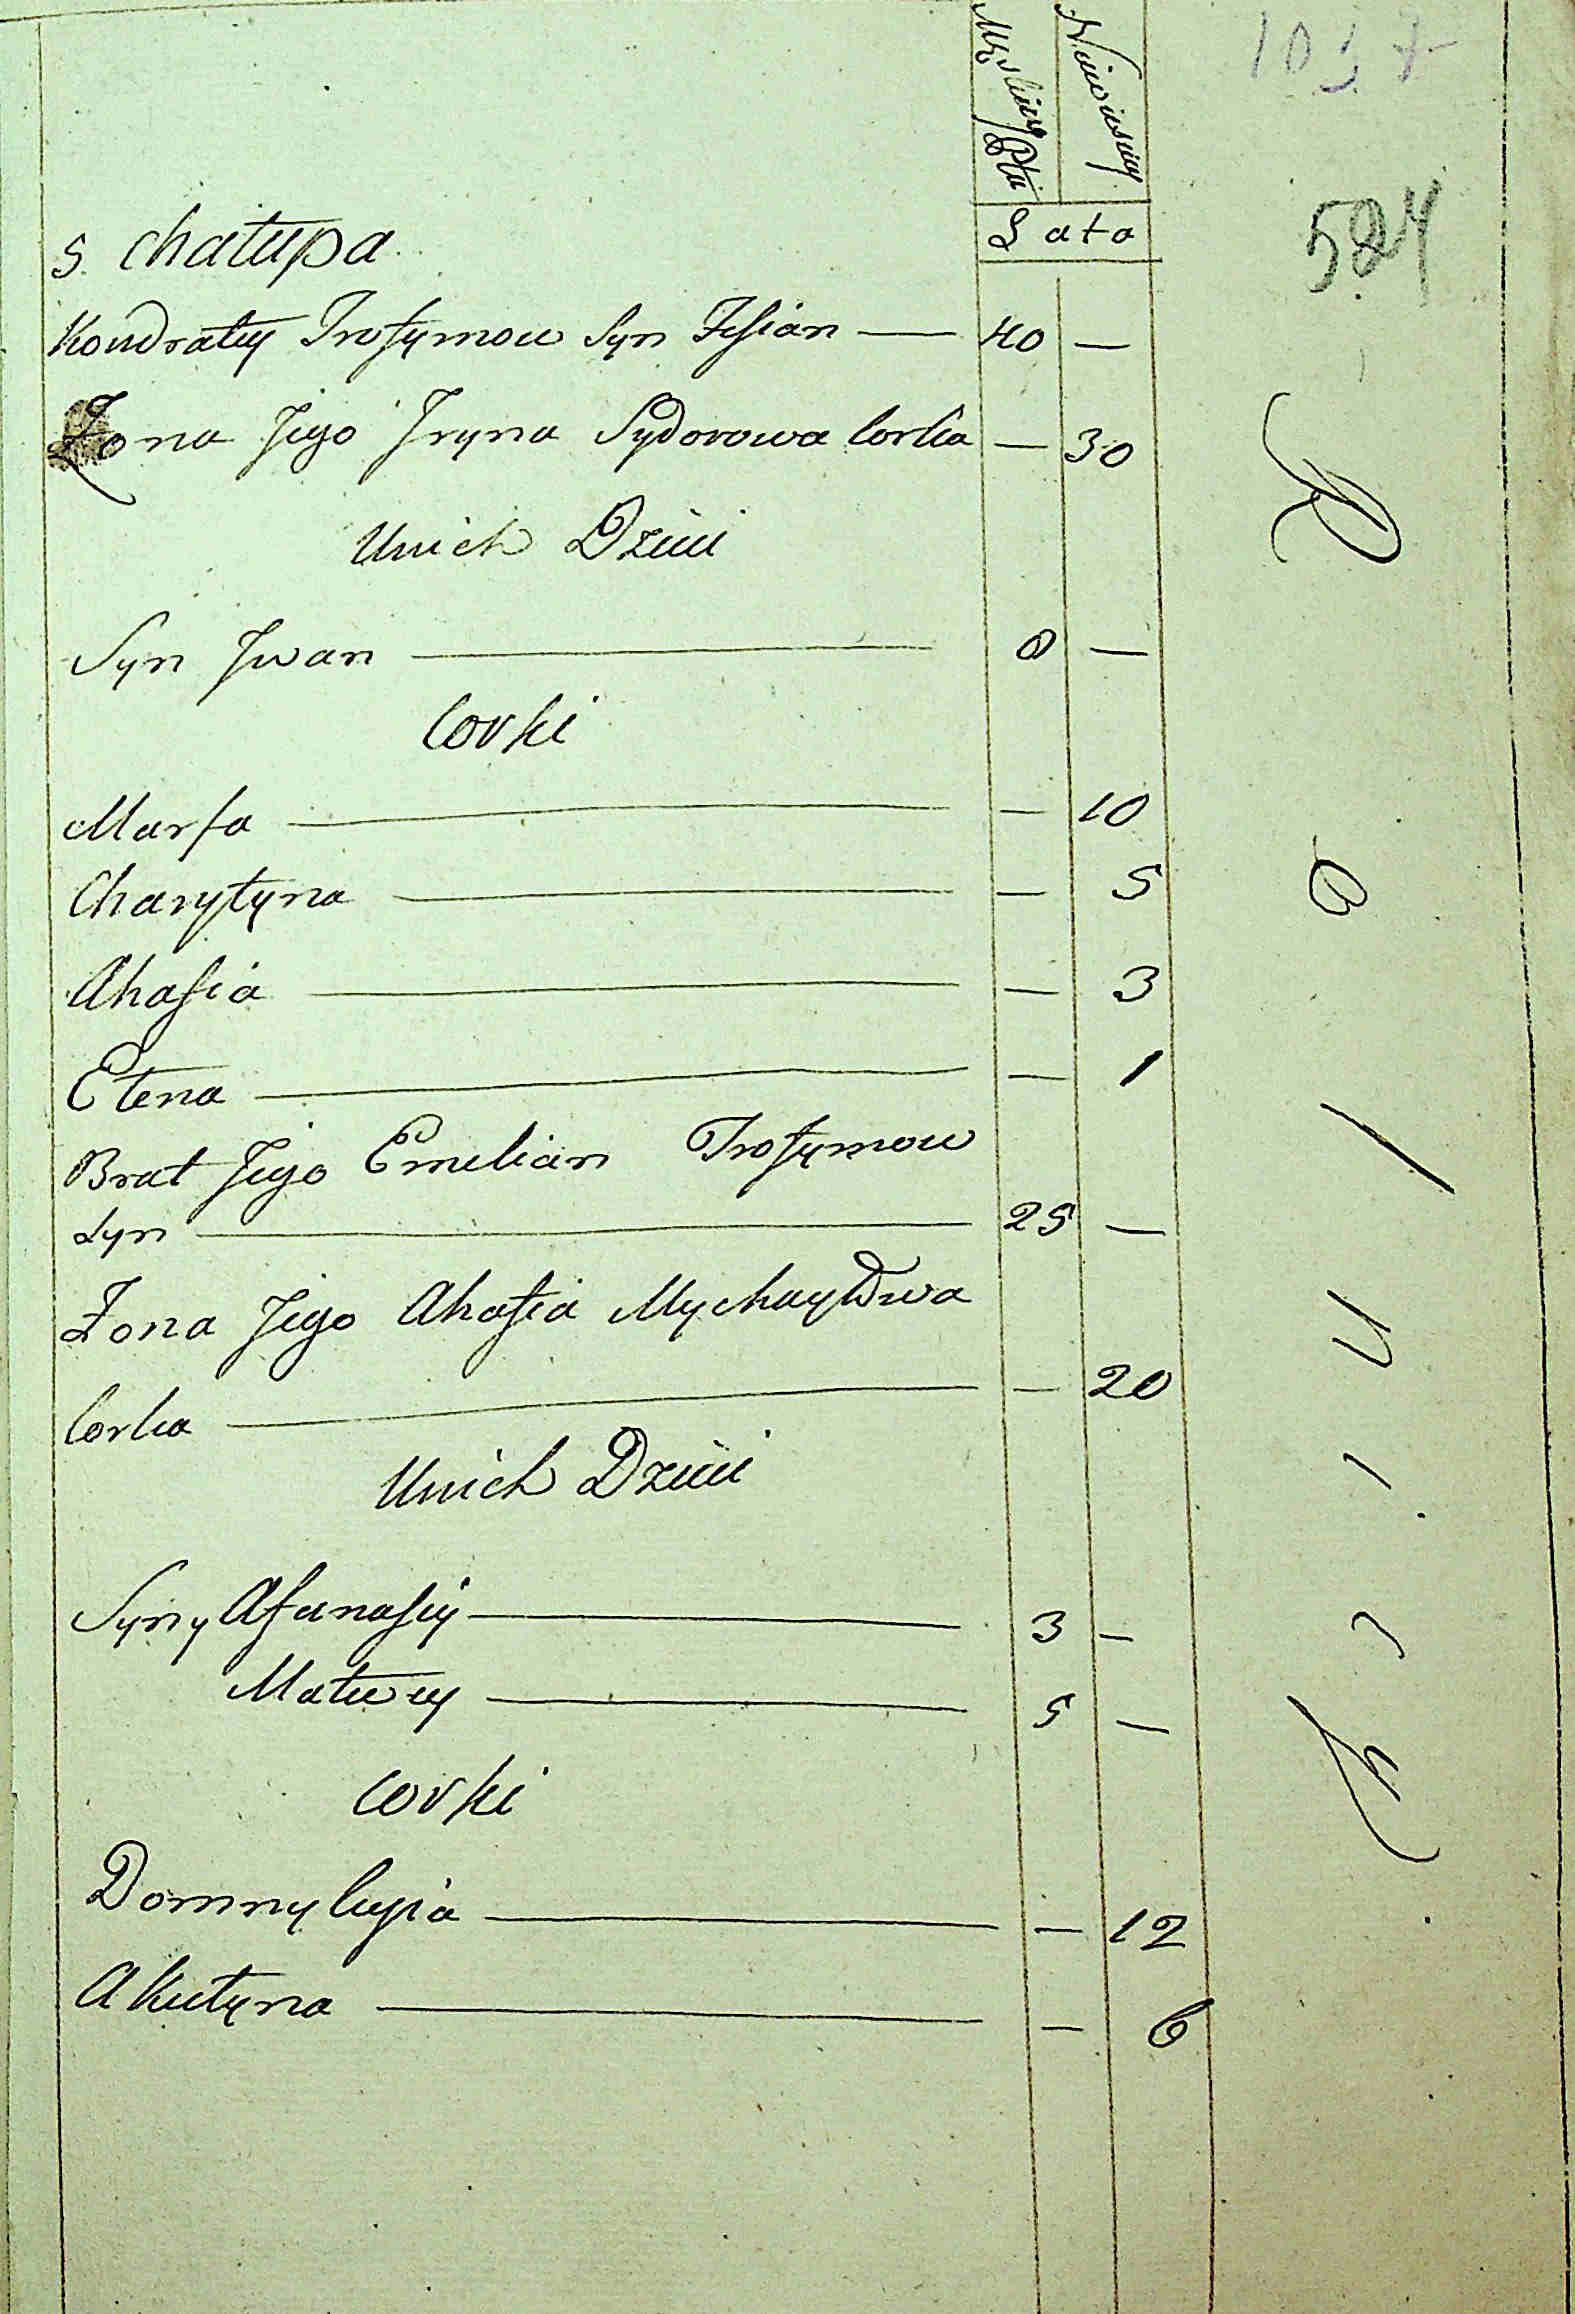 Męskiey Płci
Niewieściey
1017
524
Lata
5. Chałupa
Kondratiy Trofymow Syn Zesian — 40 —
Żona Jego Jryna Sydorowa Corka — 30
Unich Dzieci
Syn Jwan — 8 —
Corki
Marfa — — 10
Charytyna — — 5
Ahafia — — 3
Elena — — 1
Brat Jego Emelian Trofymow
Syn — 25 —
Żona Jego Ahafia Mychayłowa
Corka — — 20
Unich Dzieci
Syny Afanasiy — 3 —
Matwiey — 5 —
Corki
Domnykyia — — 12
Akulyna — — 6